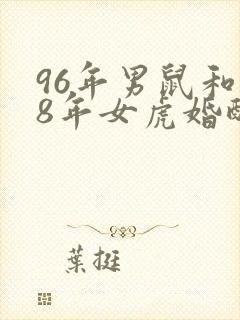 96年男鼠和
8年女虎婚
葉挺